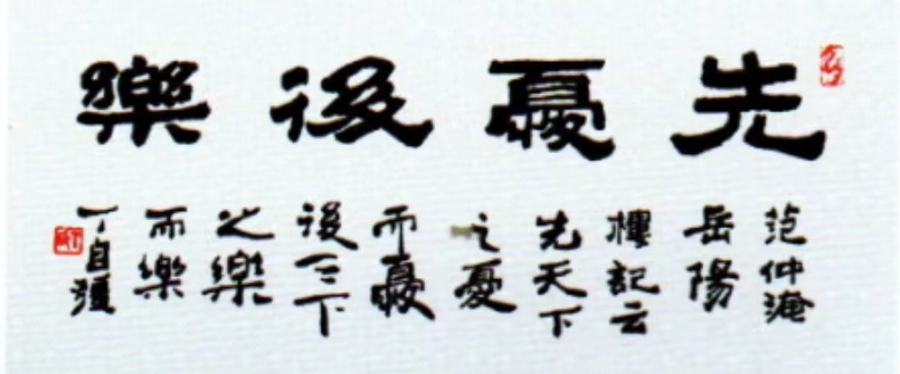 先憂後樂
范仲淹
岳陽
樓記云
先天下
之憂
而憂
後天下
之樂
而樂
丁自